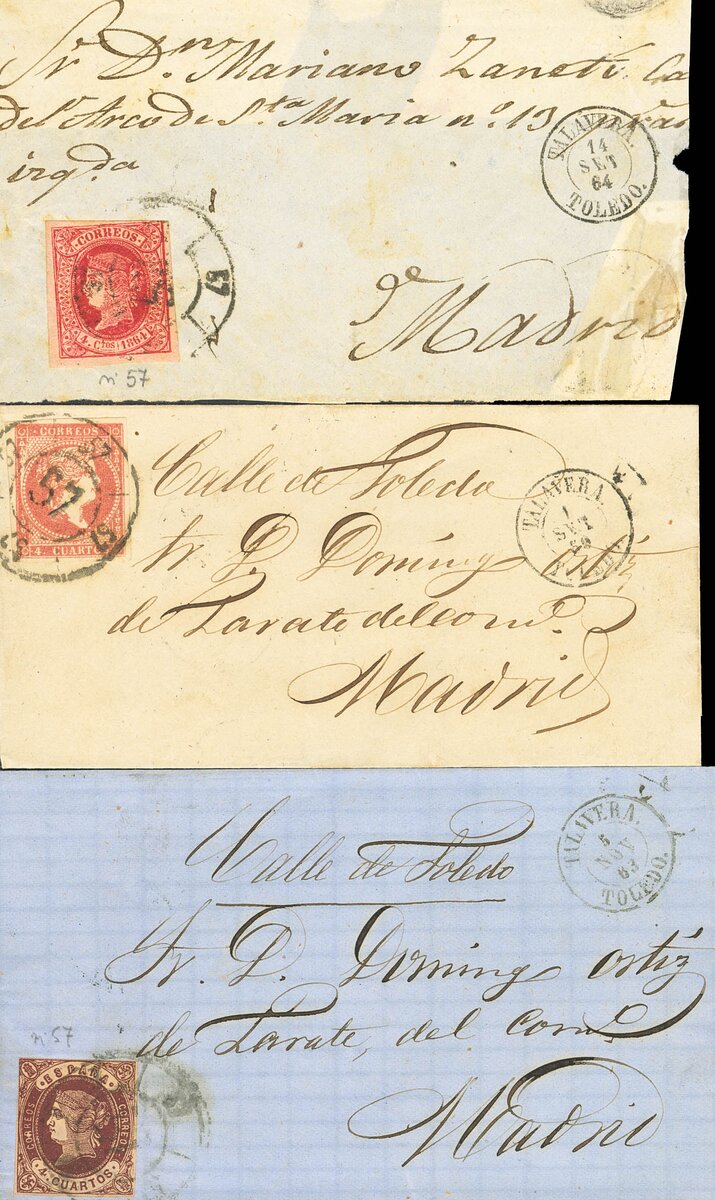 Sr. Dn. Mariano Zaneti. Ca
del Arco de Sta Maria nº. 13
izqda
TALAVERA.
14
SET
64
TOLEDO.
57
CORREOS
4 Ctos 1864
nº 57
Madrid
CORREOS
4 CUARTOS
57
Calle de Toledo
Sr. D. Domingo Ortiz
de Zarate del com.o
Madrid
TALAVERA.
1
SET
Calle de Toledo
Sr. D. Domingo Ortiz
de Zarate, del com.o
Madrid
TALAVERA.
5
NOV
63
TOLEDO.
nº 57
ESPAÑA
CORREOS
CORREOS
4 CUARTOS